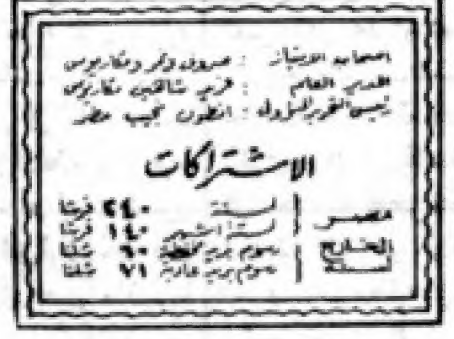 اصحاب الامتياز : صروف ونمر ومكاريوس
المدير العام : عزيز شاهين مكاريوس
رئيس التحرير المسؤول : انطون نجيب مطر
الاشتراكات
مصر | لسنة ٢٤٠ قرشا
لستة اشهر ١٤٠ قرشا
الخارج لسنة | رسوم بريد مخفضة ٦٠ شلنا
رسوم بريد عادية ٧١ شلنا